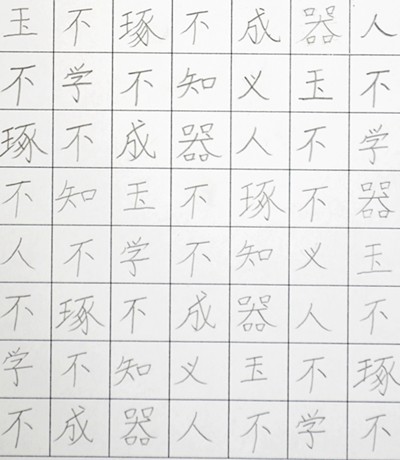 玉不琢不成器人
不学不知义玉不
琢不成器人不学
不知玉不琢不器
人不学不知义玉
不琢不成器人不
学不知义玉不琢
不成器人不学不